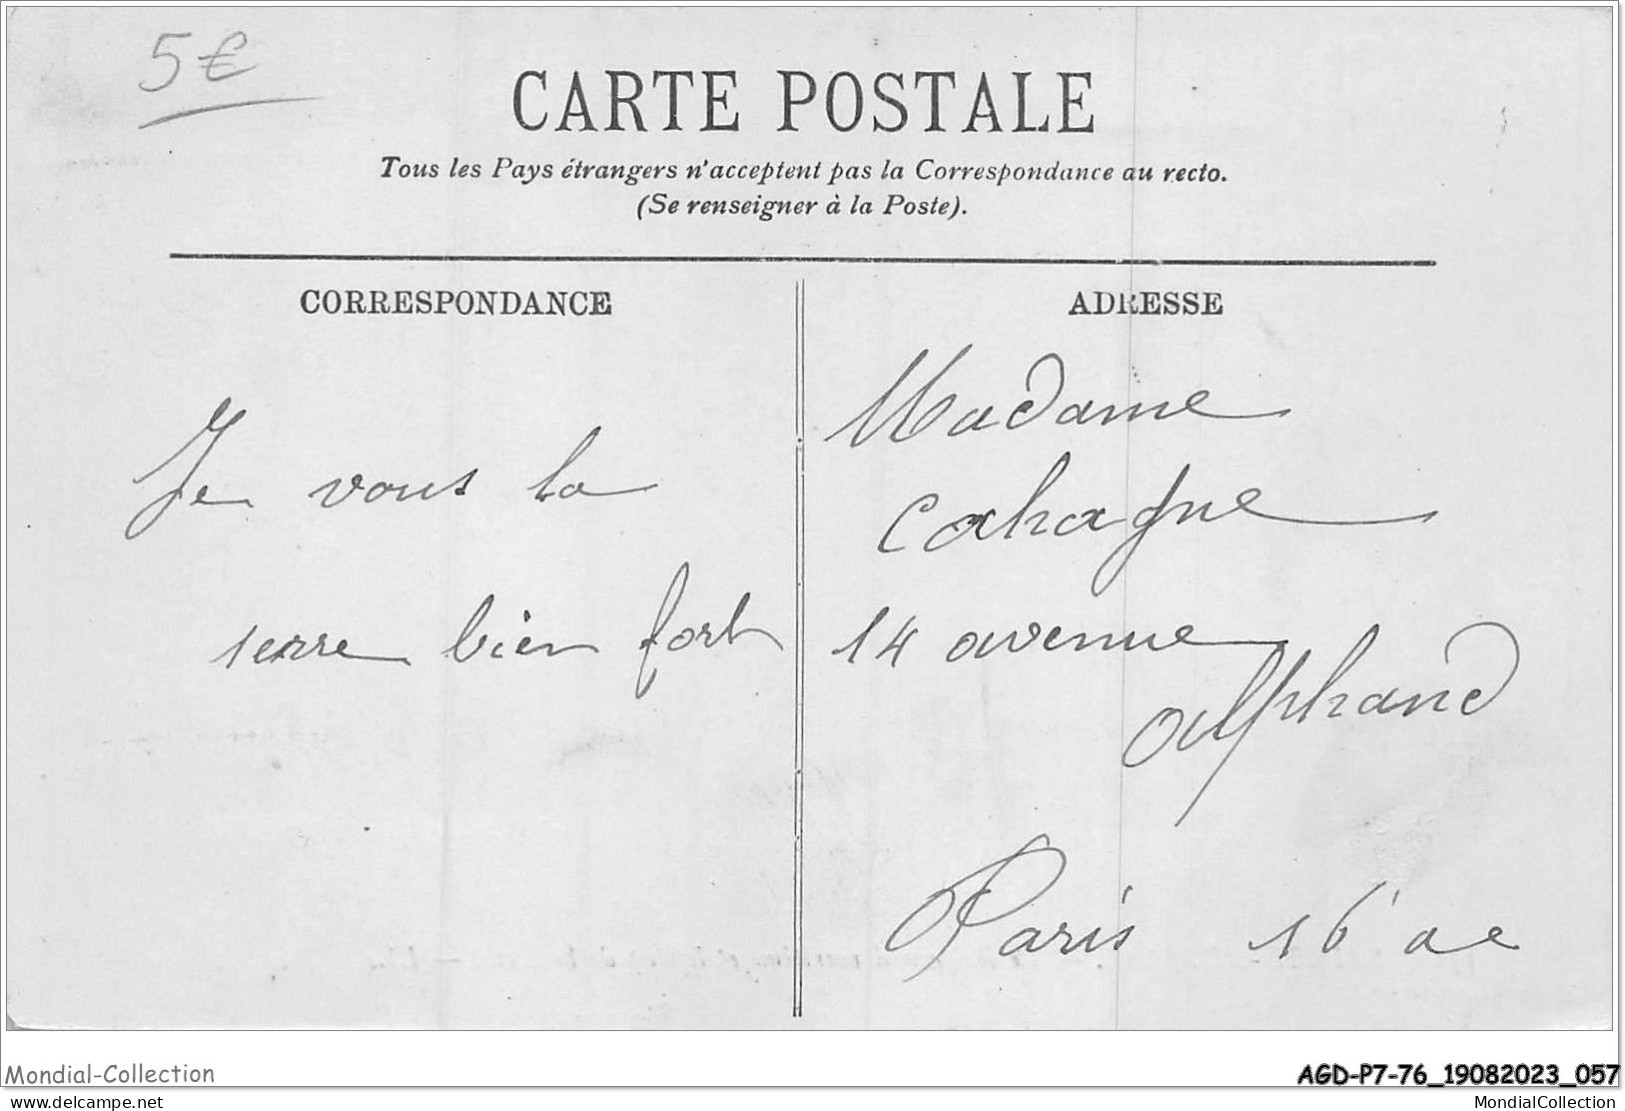 5€
CARTE POSTALE
Tous les Pays étrangers n'acceptent pas la Correspondance au recto.
(Se renseigner à la Poste).
CORRESPONDANCE
Je vous la
serre bien fort
ADRESSE
Madame
Cahagne
14 avenue
Alphand
Paris 16 ae
Mondial-Collection
AGD-P7-76_19082023_057
www.delcampe.net
MondialCollection